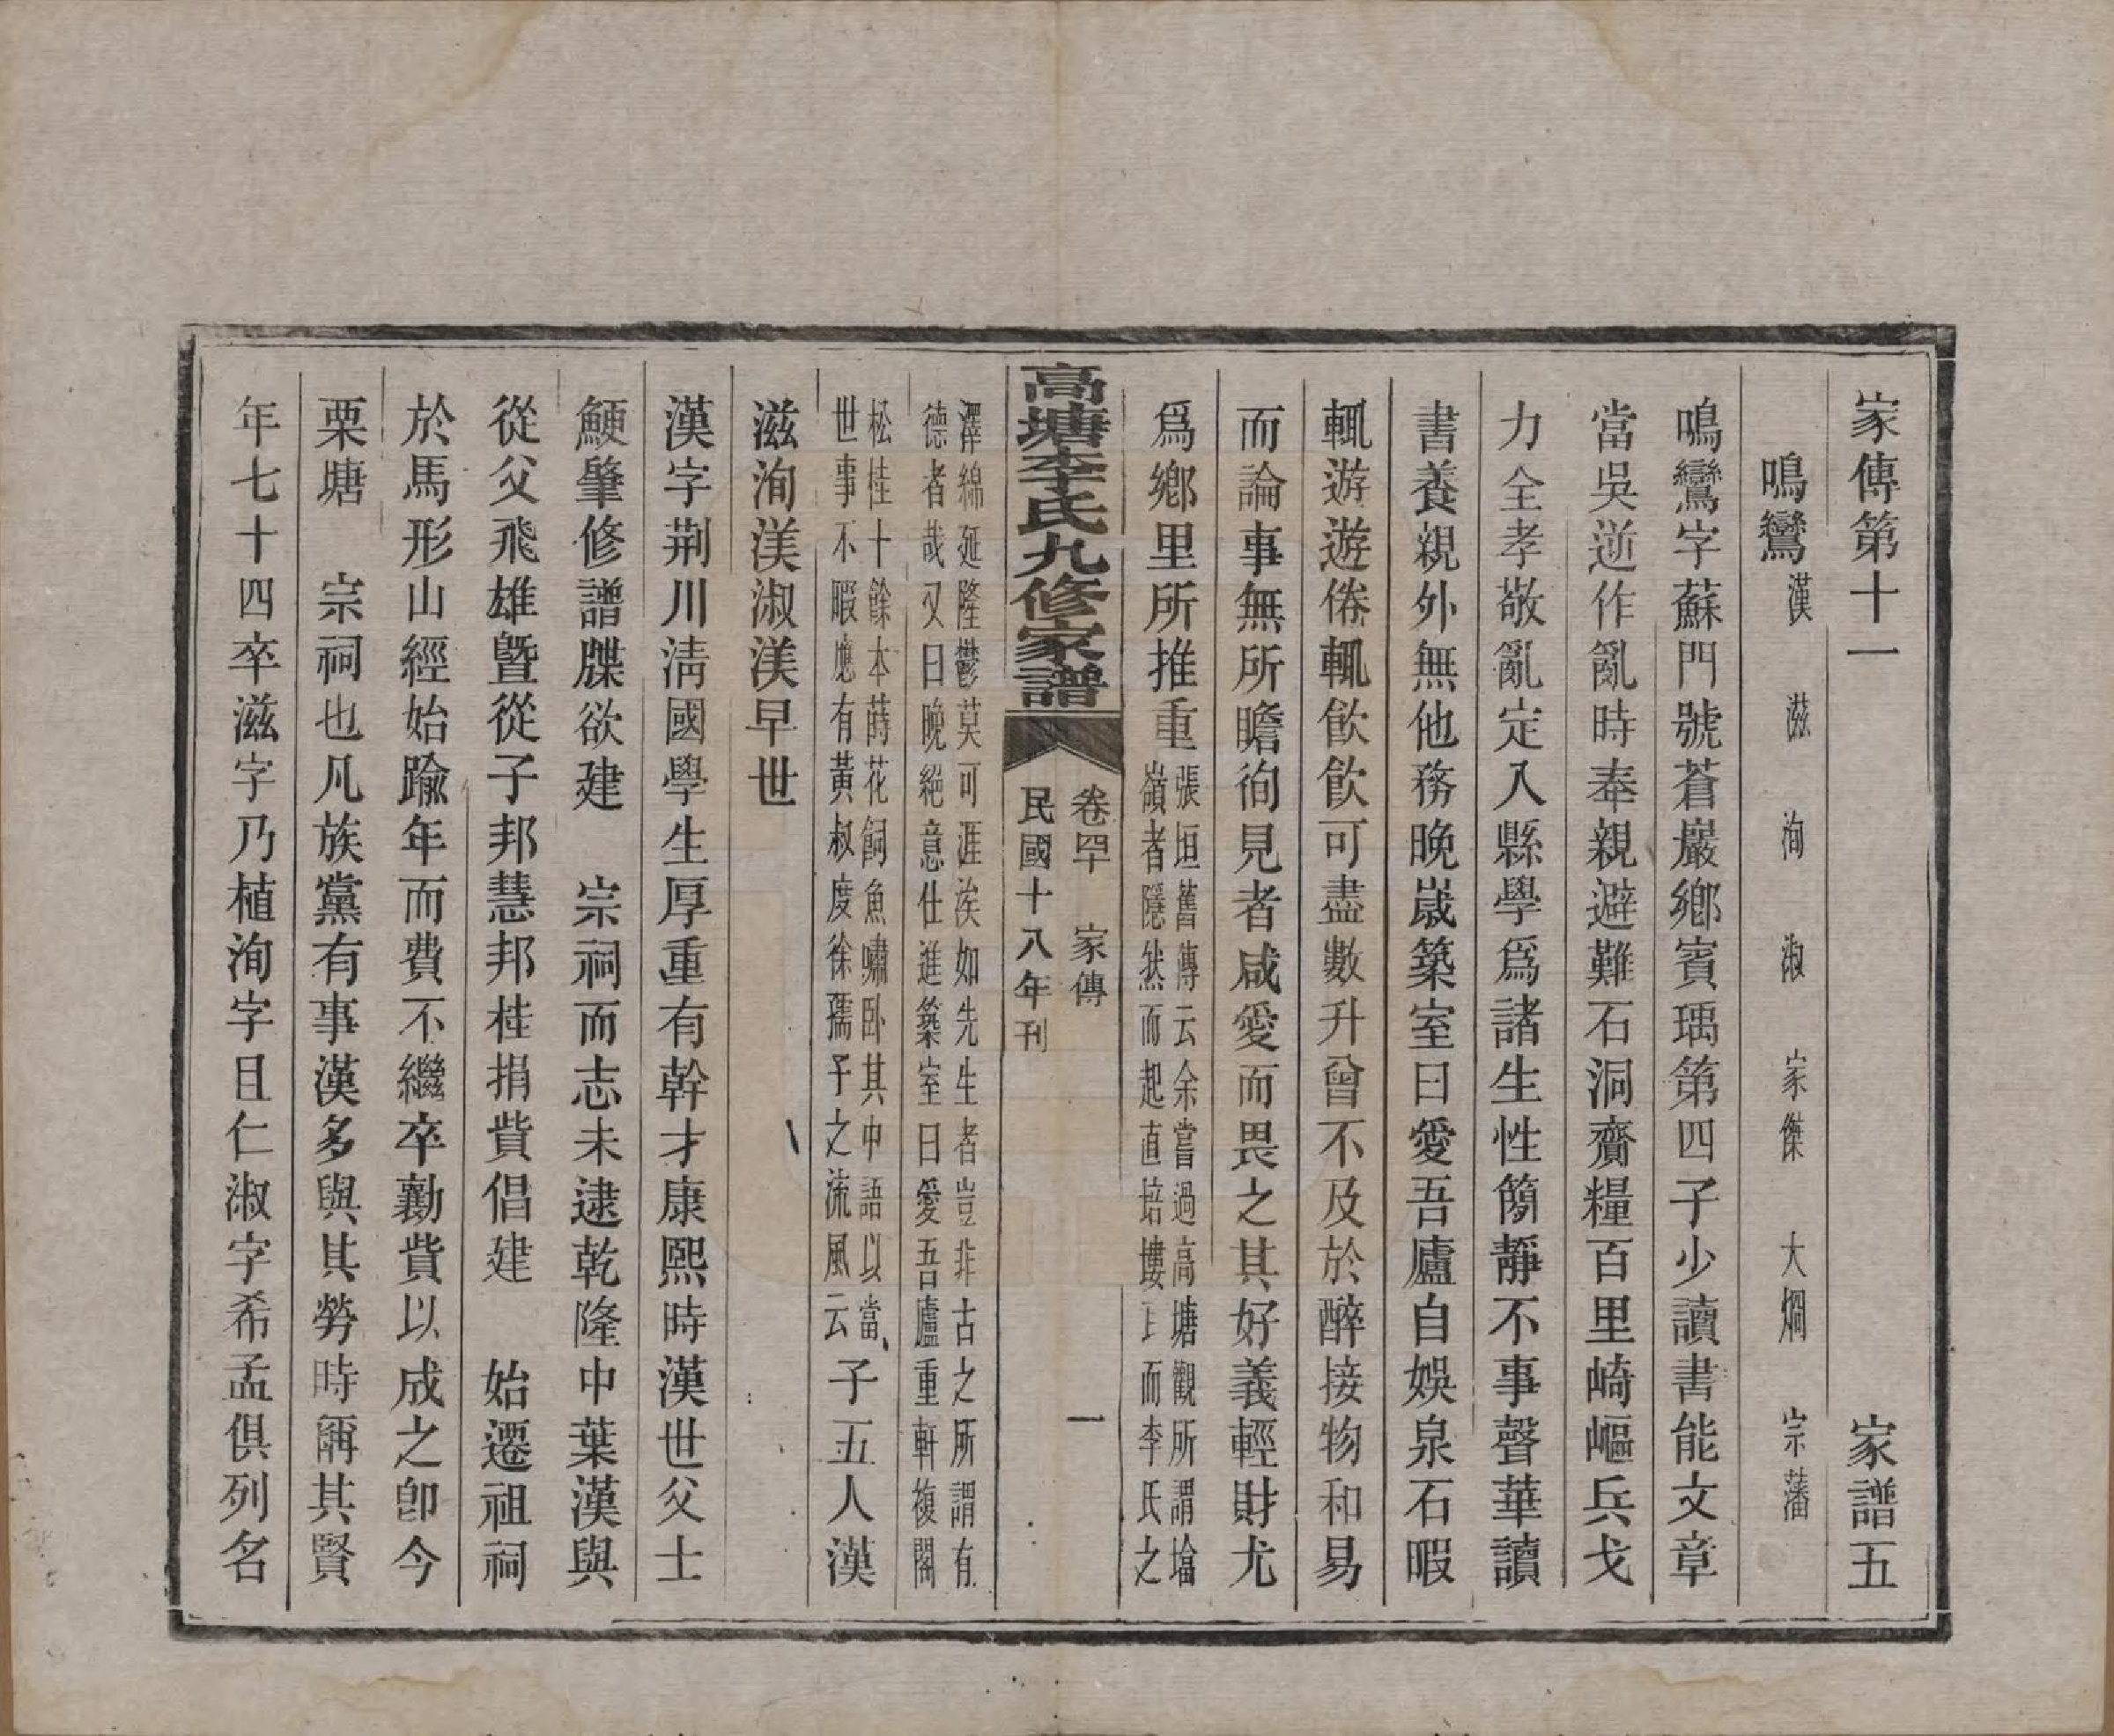 家傳第十一　家譜五
鳴鸞　漢　滋　洵　淑　家傑　大烱　宗藩
鳴鸞字蘇門號蒼巖鄉賓瑀第四子少讀書能文章
當吳逆作亂時奉親避難石洞齎糧百里崎嶇兵戈
力全孝敬亂定入縣學爲諸生性簡靜不事聲華讀
書養親外無他務晚歲築室曰愛吾廬自娛泉石暇
輒遊遊倦輒飮飮可盡數升曾不及於醉接物和易
而論事無所瞻徇見者咸愛而畏之其好義輕財尤
爲鄉里所推重
張垣舊傳云余嘗過高塘觀所謂
嶺者隱然而起直培塿𠀉而李氏之
高塘李氏九修家譜
卷四　家傳　一
民國十八年刊
澤綿延隆鬱莫可涯涘如先生者豈非古之所謂有
德者哉又曰晚絕意仕進築室曰愛吾廬重軒複閣
松桂十餘本蒔花飼魚嘯臥其中語以當
世事不暇應有黃叔度徐孺子之流風云
子五人漢
滋洵渼淑渼早世
漢字荆川淸國學生厚重有幹才康熙時漢世父士
鯁肇修譜牒欲建　宗祠而志未逮乾隆中葉漢與
從父飛雄暨從子邦慧邦桂捐貲倡建　始遷祖祠
於馬形山經始踰年而費不繼卒勷貲以成之卽今
栗塘　宗祠也凡族黨有事漢多與其勞時稱其賢
年七十四卒滋字乃植洵字且仁淑字希孟俱列名